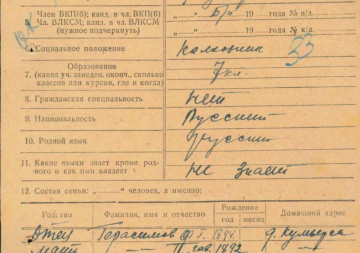 Член ВКП(б); канд. в чл. ВКП(б) 19 года № п/д.
Чл. ВЛКСМ; канд. в чл. ВЛКСМ 19 года № к/д.
(нужное подчеркнуть)
6. Социальное положение Колхозник 23
Образование
7. (какие уч. заведен. оконч., сколько 7 кл.
классов или курсов, где и когда)
8. Гражданская специальность нет
9. Национальность Русский
10. Родной язык русский
11. Какие языки знает кроме род-
ного и как ими владеет не знает
12. Состав семьи: „ “ человек, а именно:
Родство Фамилия, имя и отчество Рождение год месяц Домашний адрес
Отец Герасимов 1894
мать 1892